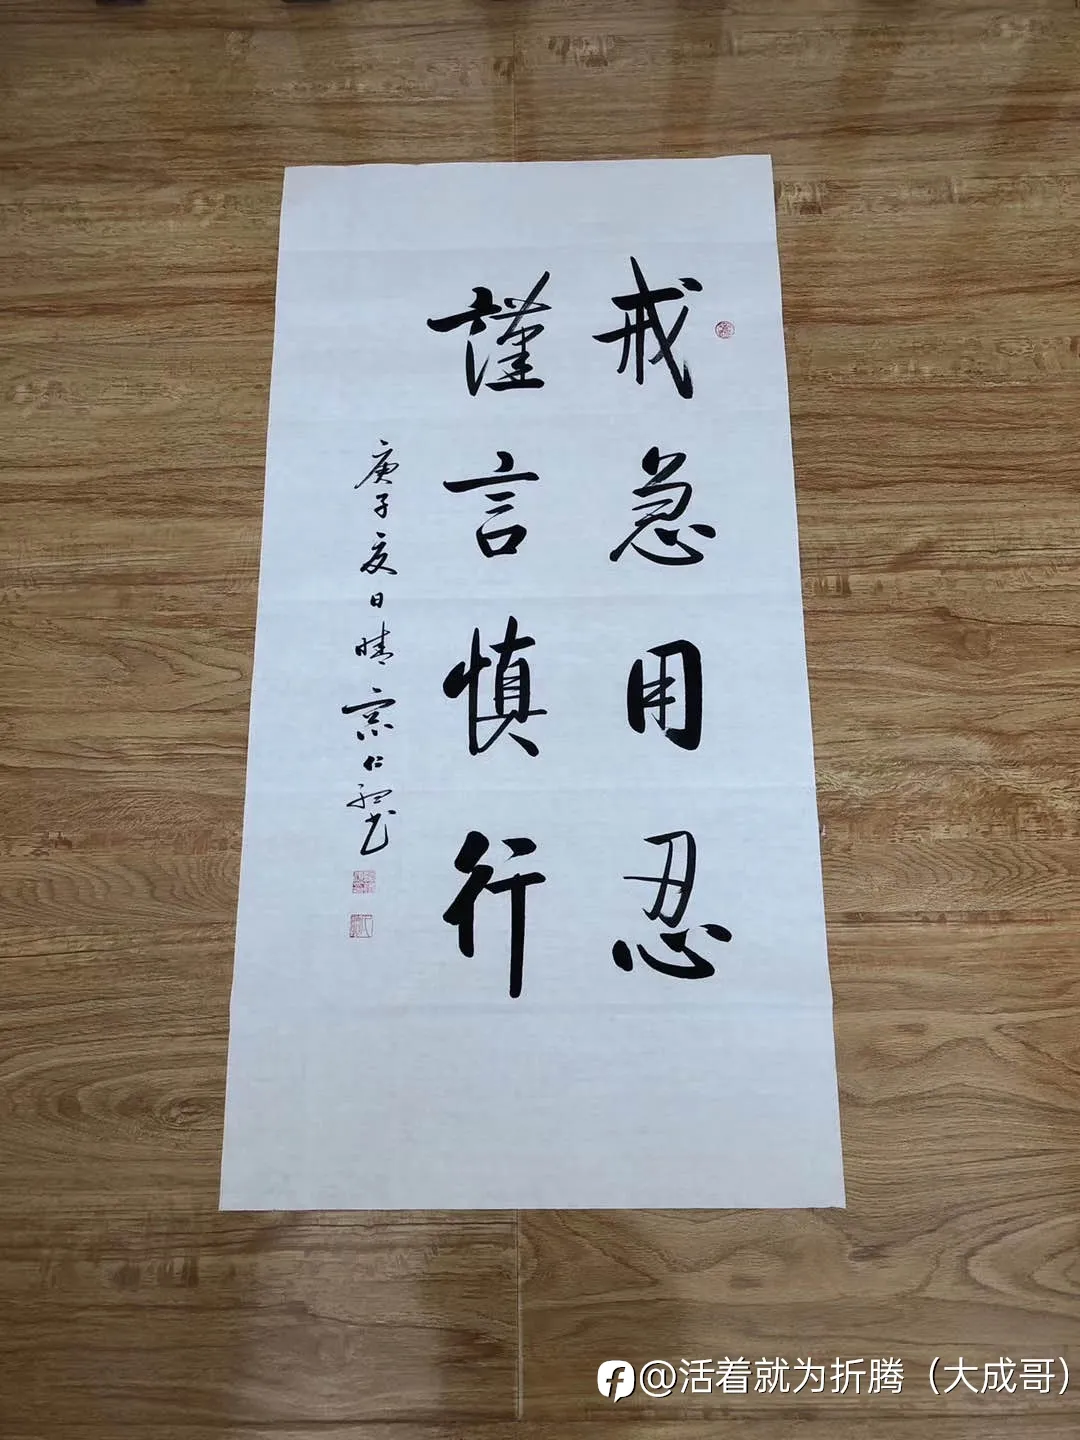 戒急用忍
謹言慎行
庚子夏日晴 宗仁
@活着就为折腾（大成哥）